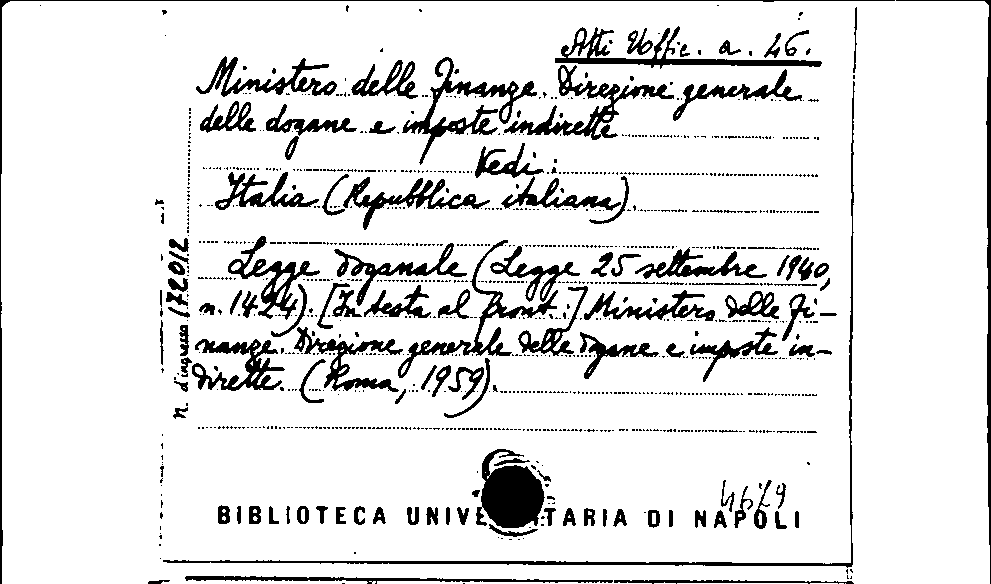 Atti Uffic. a. 46.
Ministero delle Finanze. Direzione generale
delle dogane e imposte indirette
Vedi:
Italia (Repubblica italiana).
Legge doganale (Legge 25 settembre 1940,
n. 1424). [In testa al front.:] Ministero delle Fi-
nanze. Direzione generale delle dogane e imposte in-
dirette. (Roma, 1959).
n. d'ingresso 172012
4679
BIBLIOTECA UNIVE ITARIA DI NAPOLI